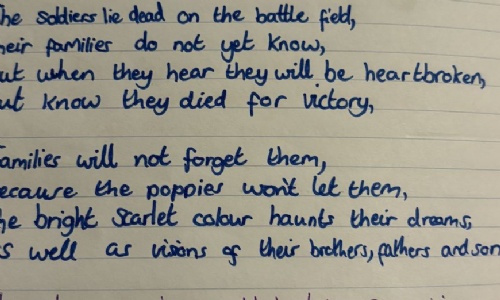 he soldiers lie dead on the battle field,
heir families do not yet know,
ut when they hear they will be heartbroken,
ut know they died for victory,
amilies will not forget them,
ecause the poppies won't let them,
he bright scarlet colour haunts their dreams,
s well as visions of their brothers, fathers and son